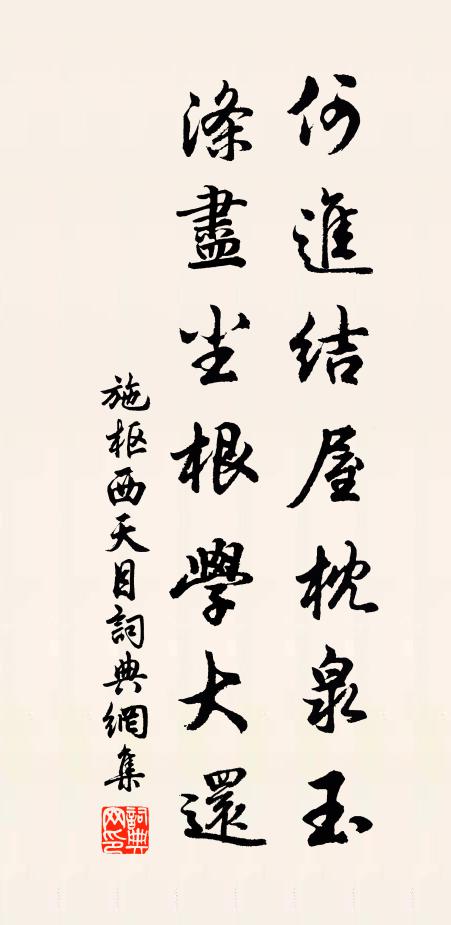 何進結屋枕泉玉
滌盡尘根學大還
施枢西天目詞典網集
詞典网印